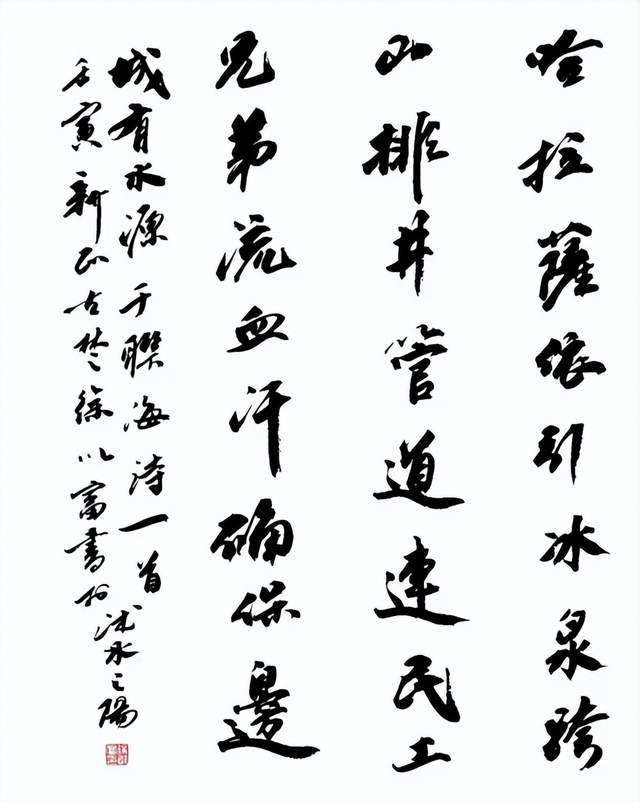 哈拉薩依引冰泉跨
山排井管道連民工
兄弟流血汗确保邊
城有水源于聯海詩一首
壬寅新正古楚徐以富書於沭水之陽